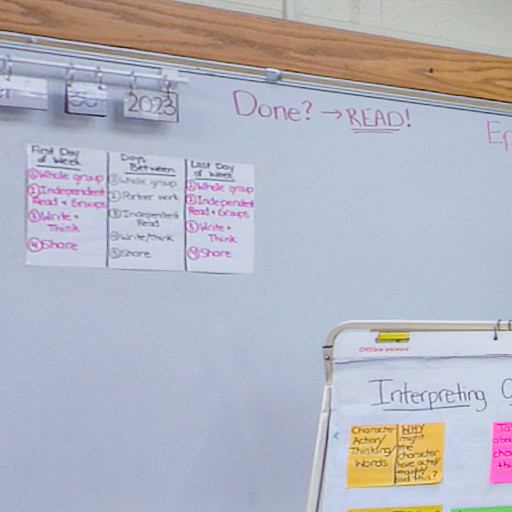 2023
Done? → READ!
Ep
First Day
of Week
① Whole group
② Independent
Read + Groups
③ Write +
Think
④ Share
Days
Between
① Whole group
② Partner work
③ Independent
Read
④ Write/Think
⑤ Share
Last Day
of Week
① Whole group
② Independent
Read + Groups
③ Write +
Think
④ Share
Interpreting
Character
Action/
Thinking/
Words
WHY
might
the
character
have
said this?